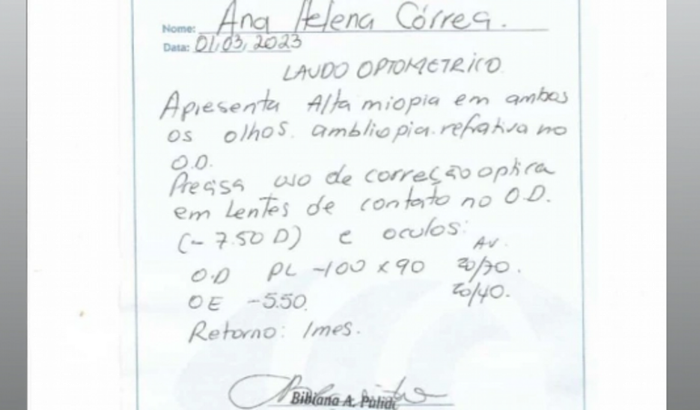 Nome: Ana Helena Côrrea.
Data: 01,03,2023
LAUDO OPTOMETRICO
Apresenta Alta miopia em ambos
os olhos. ambliopia refrativa no
O.D.
Precisa uso de correção optica
em Lentes de contato no O.D.
(-7.50 D) e oculos:
AV
O.D PL -100 x 90 20/70.
OE -5.50. 20/40.
Retorno: 1mes.
Bibiana A.